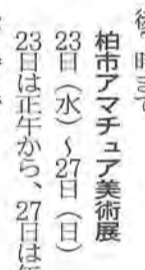 後
時まで
柏市アマチュア美術展
23日(水)~27日(日)
23日は正午から、27日は